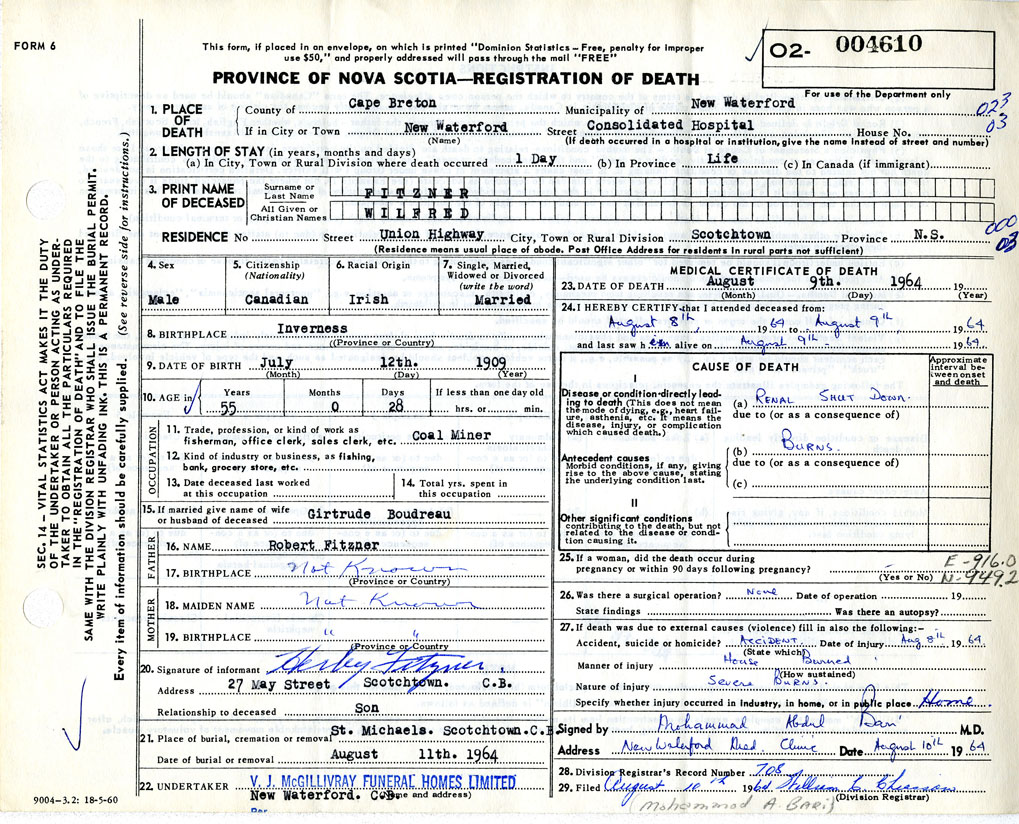 FORM 6
This form, if placed in an envelope, on which is printed "Dominion Statistics – Free, penalty for improper
use $50," and properly addressed will pass through the mail "FREE"
02- 004610
PROVINCE OF NOVA SCOTIA—REGISTRATION OF DEATH
For use of the Department only
023
03
SEC. 14 – VITAL STATISTICS ACT MAKES IT THE DUTY
OF THE UNDERTAKER OR PERSON ACTING AS UNDER-
TAKER TO OBTAIN ALL THE PARTICULARS REQUIRED
IN THE "REGISTRATION OF DEATH" AND TO FILE THE
SAME WITH THE DIVISION REGISTRAR WHO SHALL ISSUE THE BURIAL PERMIT.
WRITE PLAINLY WITH UNFADING INK. THIS IS A PERMANENT RECORD.
Every item of information should be carefully supplied. (See reverse side for instructions.)
1. PLACE OF DEATH
County of Cape Breton Municipality of New Waterford
If in City or Town New Waterford Street Consolidated Hospital House No.
(Name) (If death occurred in a hospital or institution, give the name instead of street and number)
2. LENGTH OF STAY (in years, months and days)
(a) In City, Town or Rural Division where death occurred 1 Day (b) In Province Life (c) In Canada (if immigrant)
3. PRINT NAME OF DECEASED
Surname or Last Name FITZNER
All Given or Christian Names WILFRED
000
03
RESIDENCE No Street Union Highway City, Town or Rural Division Scotchtown Province N.S.
(Residence means usual place of abode. Post Office Address for residents in rural parts not sufficient)
4. Sex
Male
5. Citizenship
(Nationality)
Canadian
6. Racial Origin
Irish
7. Single, Married,
Widowed or Divorced
(write the word)
Married
8. BIRTHPLACE Inverness
((Province or Country)
9. DATE OF BIRTH July 12th. 1909
(Month) (Day) (Year)
10. AGE in
Years Months Days If less than one day old
55 0 28 hrs. or min.
OCCUPATION
11. Trade, profession, or kind of work as
fisherman, office clerk, sales clerk, etc. Coal Miner
12. Kind of industry or business, as fishing,
bank, grocery store, etc.
13. Date deceased last worked
at this occupation
14. Total yrs. spent in
this occupation
15. If married give name of wife
or husband of deceased Girtrude Boudreau
FATHER
16. NAME Robert Fitzner
17. BIRTHPLACE Not Known
(Province or Country)
MOTHER
18. MAIDEN NAME Not Known
19. BIRTHPLACE " "
(Province or Country)
20. Signature of informant Fitzner.
Address 27 May Street Scotchtown. C.B.
Relationship to deceased Son
21. Place of burial, cremation or removal St. Michaels. Scotchtown.C.B.
Date of burial or removal August 11th. 1964
22. UNDERTAKER V. J. McGILLIVRAY FUNERAL HOMES LIMITED
New Waterford. C.B. (Name and address)
Per
9004-3.2: 18-5-60
MEDICAL CERTIFICATE OF DEATH
23. DATE OF DEATH August 9th. 1964 19
(Month) (Day) (Year)
24. I HEREBY CERTIFY that I attended deceased from:
August 8th, 1964 to August 9th, 1964
and last saw him alive on August 9th 1964
CAUSE OF DEATH
Approximate
interval be-
tween onset
and death
I
Disease or condition directly lead-
ing to death (This does not mean
the mode of dying, e.g., heart fail-
ure, asthenia, etc. It means the
disease, injury, or complication
which caused death.)
(a) RENAL SHUT DOWN.
due to (or as a consequence of)
Antecedent causes
Morbid conditions, if any, giving
rise to the above cause, stating
the underlying condition last.
(b) BURNS.
due to (or as a consequence of)
(c)
II
Other significant conditions
contributing to the death, but not
related to the disease or condi-
tion causing it.
25. If a woman, did the death occur during
pregnancy or within 90 days following pregnancy?
(Yes or No)
E-916.0
N-949.2
26. Was there a surgical operation? None Date of operation 19
State findings Was there an autopsy?
27. If death was due to external causes (violence) fill in also the following:–
Accident, suicide or homicide? ACCIDENT Date of injury Aug 8th 1964
(State which)
Manner of injury House Burned
(How sustained)
Nature of injury Severe BURNS.
Specify whether injury occurred in industry, in home, or in public place Home
Signed by Mohammad Abdul Bari M.D.
Address New Waterford Med. Clinic Date August 10th 1964
28. Division Registrar's Record Number 708
29. Filed August 10th 1964 William
(Division Registrar)
(Mohammad A. BARI)